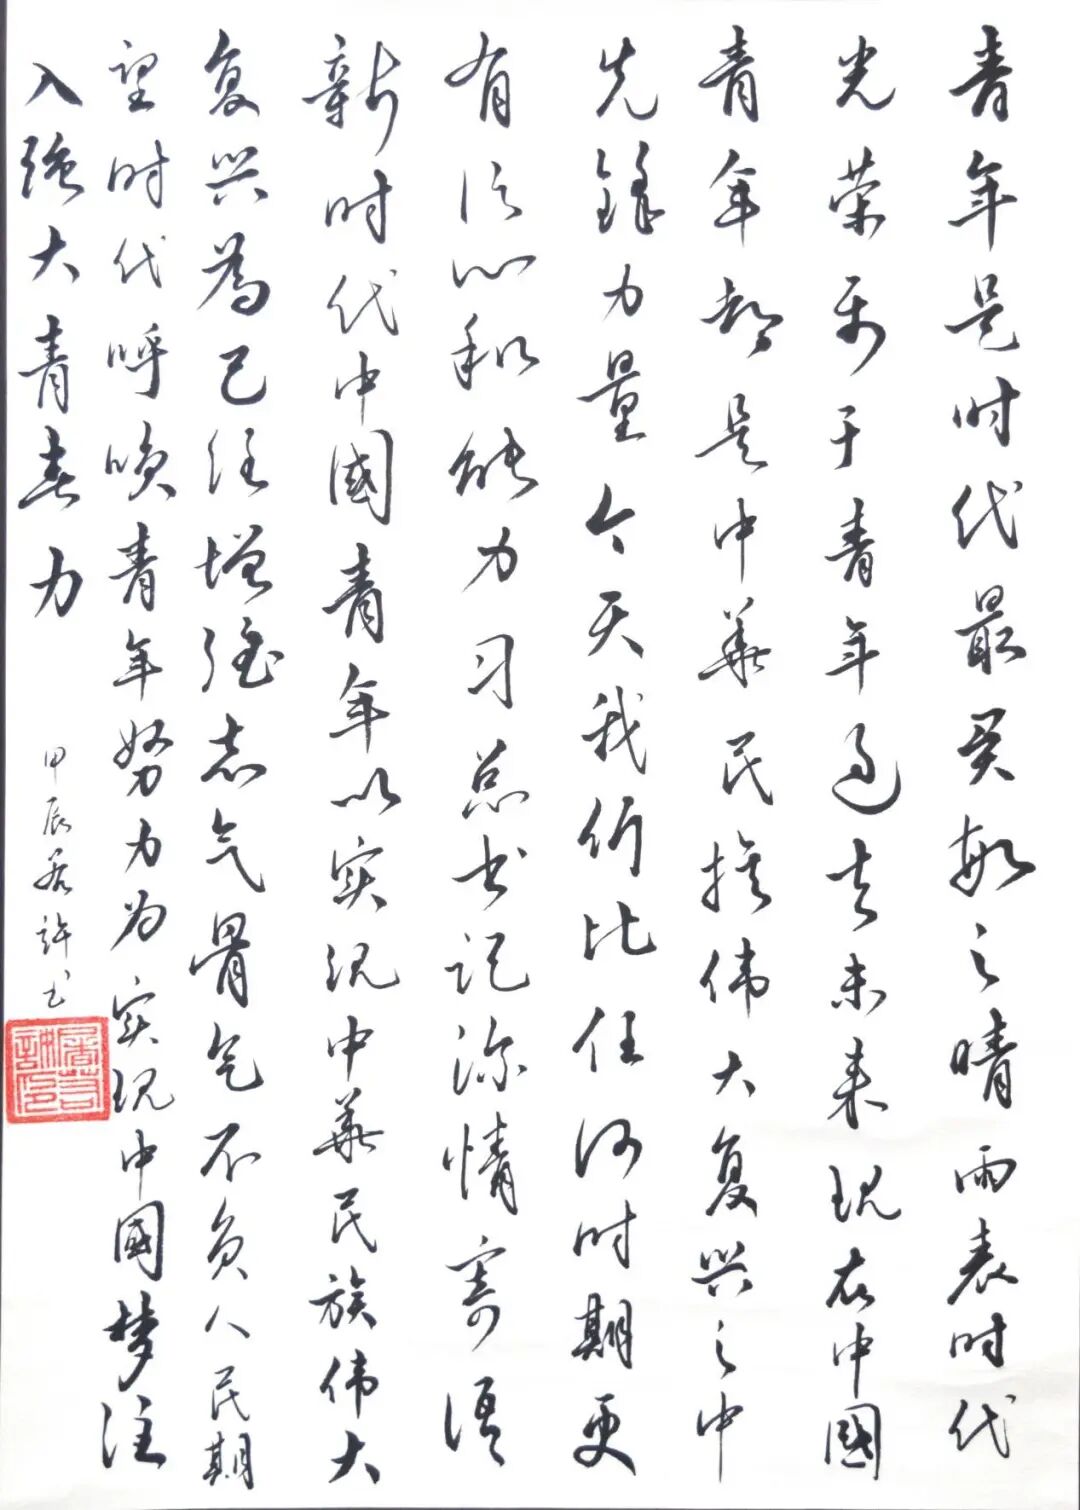 青年是时代最美好之晴雨表时代
光荣属于青年过去未来现在中國
青年都是中华民族伟大复兴之中
先锋力量今天我们比任何时期更
有信心和能力习总书记深情寄语
新时代中國青年以实现中华民族伟大
复兴為己任增强志气骨气不负人民期
望时代呼唤青年努力为实现中國梦注
入强大青春力
甲辰 許书